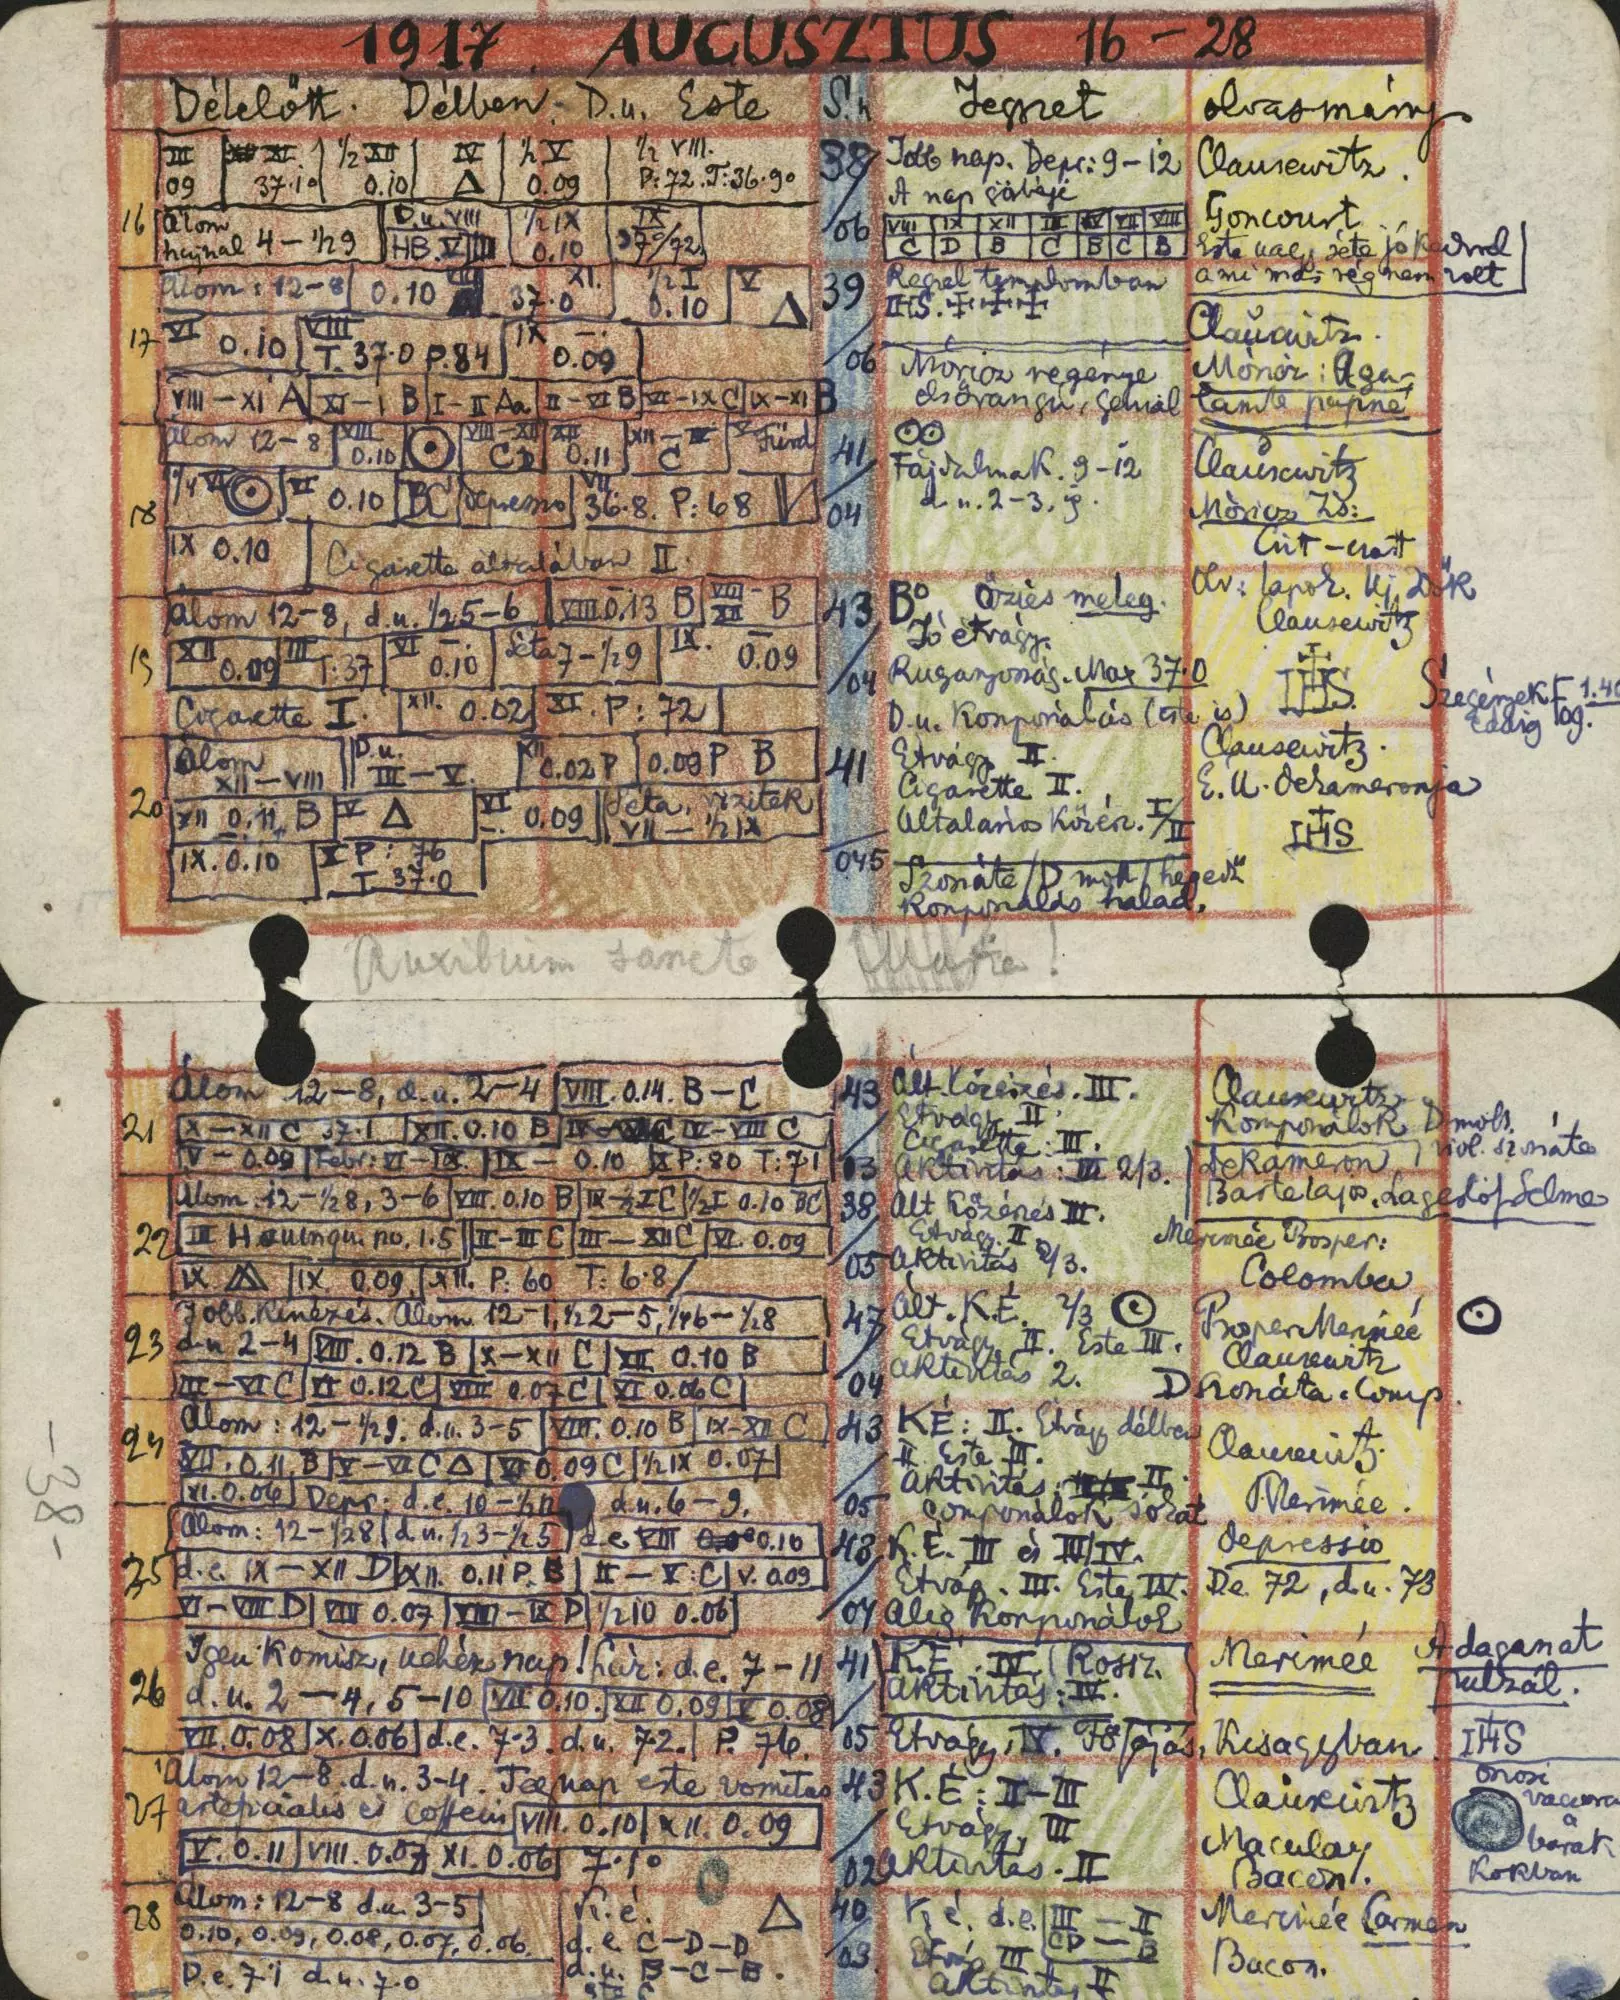 1917. AUGUSZTUS 16-28
Délelőtt. Délben. D.u. Este S.n. Jegyzet olvasmány
16
III 09
XI. 37.1°
½ XII 0.10
IV Δ
½ V 0.09
½ VIII. P:72. T:36.9°
38/06
Jobb nap. Depr: 9-12
A nap görbéje
Clausewitz.
Álom hajnal 4-½9
D.u. VIII
HB. V
½ IX 0.10
IX
VIII IX XII III IV VII VIII
C D B C B C B
Goncourt
Este nagy séta jó kedvvel
ami már rég nem volt
17
Álom: 12-8
0.10
XI. 37.0
½ I 0.10
V Δ
39/06
Reggel templomban
IHS. +++
Clausewitz.
VI 0.10
VIII T. 37.0 P. 84
IX 0.09
Móricz regénye
elsőrangú, geniál
VIII-XI A
XI-I B
I-II Aa
II-VI B
VI-IX C
IX-XI B
18
Álom 12-8
VIII 0.10
⊙
VIII-XII CD
XII 0.11
XII-IV C
V Fürdő
41/04
⊙⊙
Fájdalmak. 9-12
d.u. 2-3. 9.
Clausewitz
Móricz Zs:
VI 0.10
BC
depressio
VII. 36.8. P: 68
IX 0.10
Cigarette általában II.
19
Álom 12-8, d.u. ½5-6
VIII 0.13 B
VIII-XII B
43/04
B° Őzies meleg.
Jó étvágy.
Ruganyosság. Max 37.0
D.u. Komponálás (este is)
Olv: lapok. Uj Idők
Clausewitz
IHS
XII 0.09
III T: 37
VI 0.10
Séta 7-½9
IX. 0.09
Szegények F 1.40
Eddig
Cigarette I.
XII. 0.02
XI. P: 72
20
Álom XII-VIII
D.u. III-V.
XII 0.02 P
0.09 P B
41/045
Étvágy II.
Cigarette II.
Általános Közér. I/II
Clausewitz.
E. U. dekameronja
IHS
XII 0.11. B
V Δ
VI 0.09
Séta, vizitek VII-½IX
IX. 0.10
X P: 76
T 37.0
Szonáte / D moll / hegedű
Komponálás halad.
Auxilium sancte Maria!
21
Álom 12-8, d.u. 2-4
VIII. 0.14. B-C
43/03
Ált. közérzés. III.
Étvágy II
Cigarette: III.
Aktivitás: III 2/3.
Clausewitz
Komponálok D moll.
viol. szonáte
Dekameron
Bartelajos. Lagerlöf Selma
X-XII C 37.1
XII. 0.10 B
IV-VIII C
V-0.09
Febr: VI-IX.
IX-0.10
X P: 80 T: 71
22
Álom 12-½8, 3-6
VIII. 0.10 B
IX-½I C
½I 0.10 BC
38/05
Ált Közérzés III.
Étvágy II
Aktivitás 2/3.
Merimée Prosper:
Colomba
II-III C
III-XII C
VI. 0.09
IX. Δ
IX. 0.09
XII. P: 60 T: 6.8
23
Jobb kinézés. Álom 12-1, ½2-5, ¼6-½8
d.u. 2-4
VIII. 0.12 B
X-XII C
XII 0.10 B
III-VI C
VI 0.12 C
VIII 0.07 C
XI 0.06 C
47/04
Ált. K.É. 2/3
Étvágy II. Este III.
Aktivitás 2.
Prosper Merimée
Clausewitz
D Szonáta. comp.
⊙
24
Álom: 12-½9. d.u. 3-5
VIII. 0.10 B
IX-XII C
43/05
KÉ: II. Étvágy délben
II Este III.
Aktivitás. II.
Componálok sokat
Clausewitz.
Merimée.
XII. 0.11. B
V-VI C Δ
VI 0.09 C
½IX 0.07
XI. 0.06
Depr: d.e. 10-½11 d.u. 6-9.
25
Álom: 12-½8
d.u. ½3-½5
d.e. VIII 0.10
48/04
K.É. III és III/IV.
Étvágy. III. Este IV.
Alig Komponálok
depressio
De. 72, d.u. 73
d.e. IX-XII D
XII. 0.11 P. B
II-V: C
V. 0.09
VI-VIII D
VIII 0.07
VIII-IX D
½10 0.06
26
Igen Komisz, nehéz nap! húr: d.e. 7-11
d.u. 2-4, 5-10
VII 0.10.
XII 0.09
V 0.08
VII. 0.08
X. 0.06
d.e. 7.3. d.u. 7.2.
P. 76.
41/05
K.É. IV. (Rossz.
Aktivitás: IV.
Étvágy. IV. Főfájás.
Merimée
Kisagyban
A daganat
pulzál.
IHS
27
Álom 12-8. d.u. 3-4. Tegnap este vomitas
artificialis és coffein
VIII. 0.10
XII. 0.09
V. 0.11
VIII. 0.07
XI. 0.06
7.1°
43/02
K.É: II-III
Étvágy III
Aktivitás. II
Clausewitz
Maculay
Bacon.
orosi
vacsora
a
barak
Kokban
28
Álom: 12-8 d.u. 3-5
0.10, 0.09, 0.08, 0.07, 0.06.
D.e. 7.1 d.u. 7.0
K.é. Δ
d.e. C-D-D
d.u. B-C-B.
40/03.
K é. d.e. III-II
CD-B
Étvágy III
Aktivitás II
Merimée Carmen
Bacon.
-38-